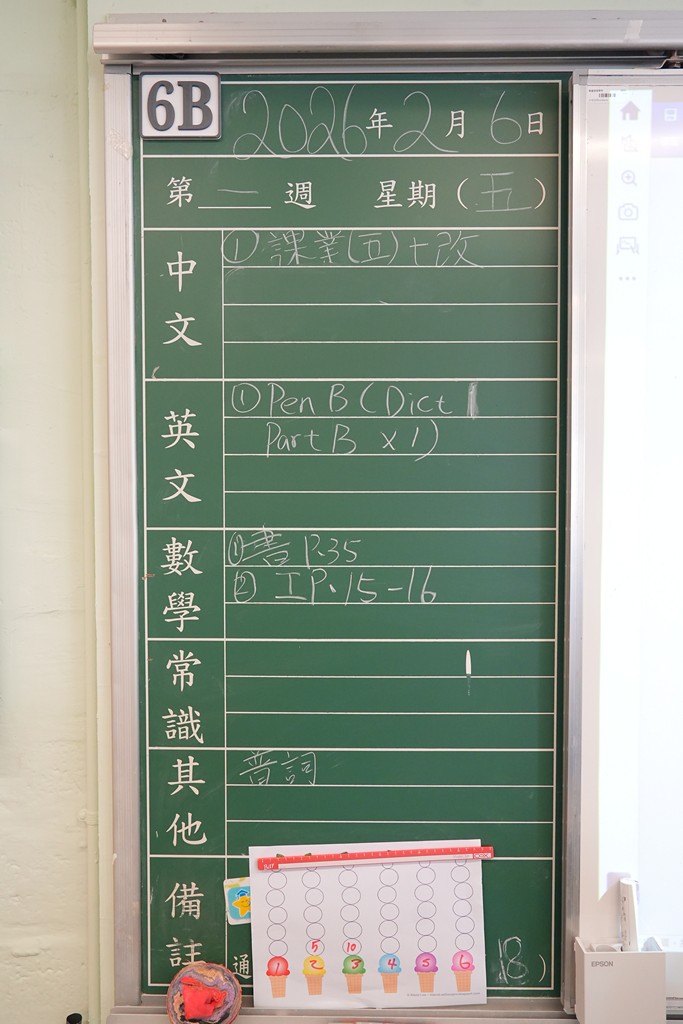 6B
2026年2月6日
第一週 星期(五)
中文
① 課業(五)+改
英文
① Pen B (Dict 1
Part B x 1)
數學
① 書 P.35
② 工 P.15-16
常識
其他
普詞
備註
通
18)
5 10
1 2 3 4 5 6
EPSON